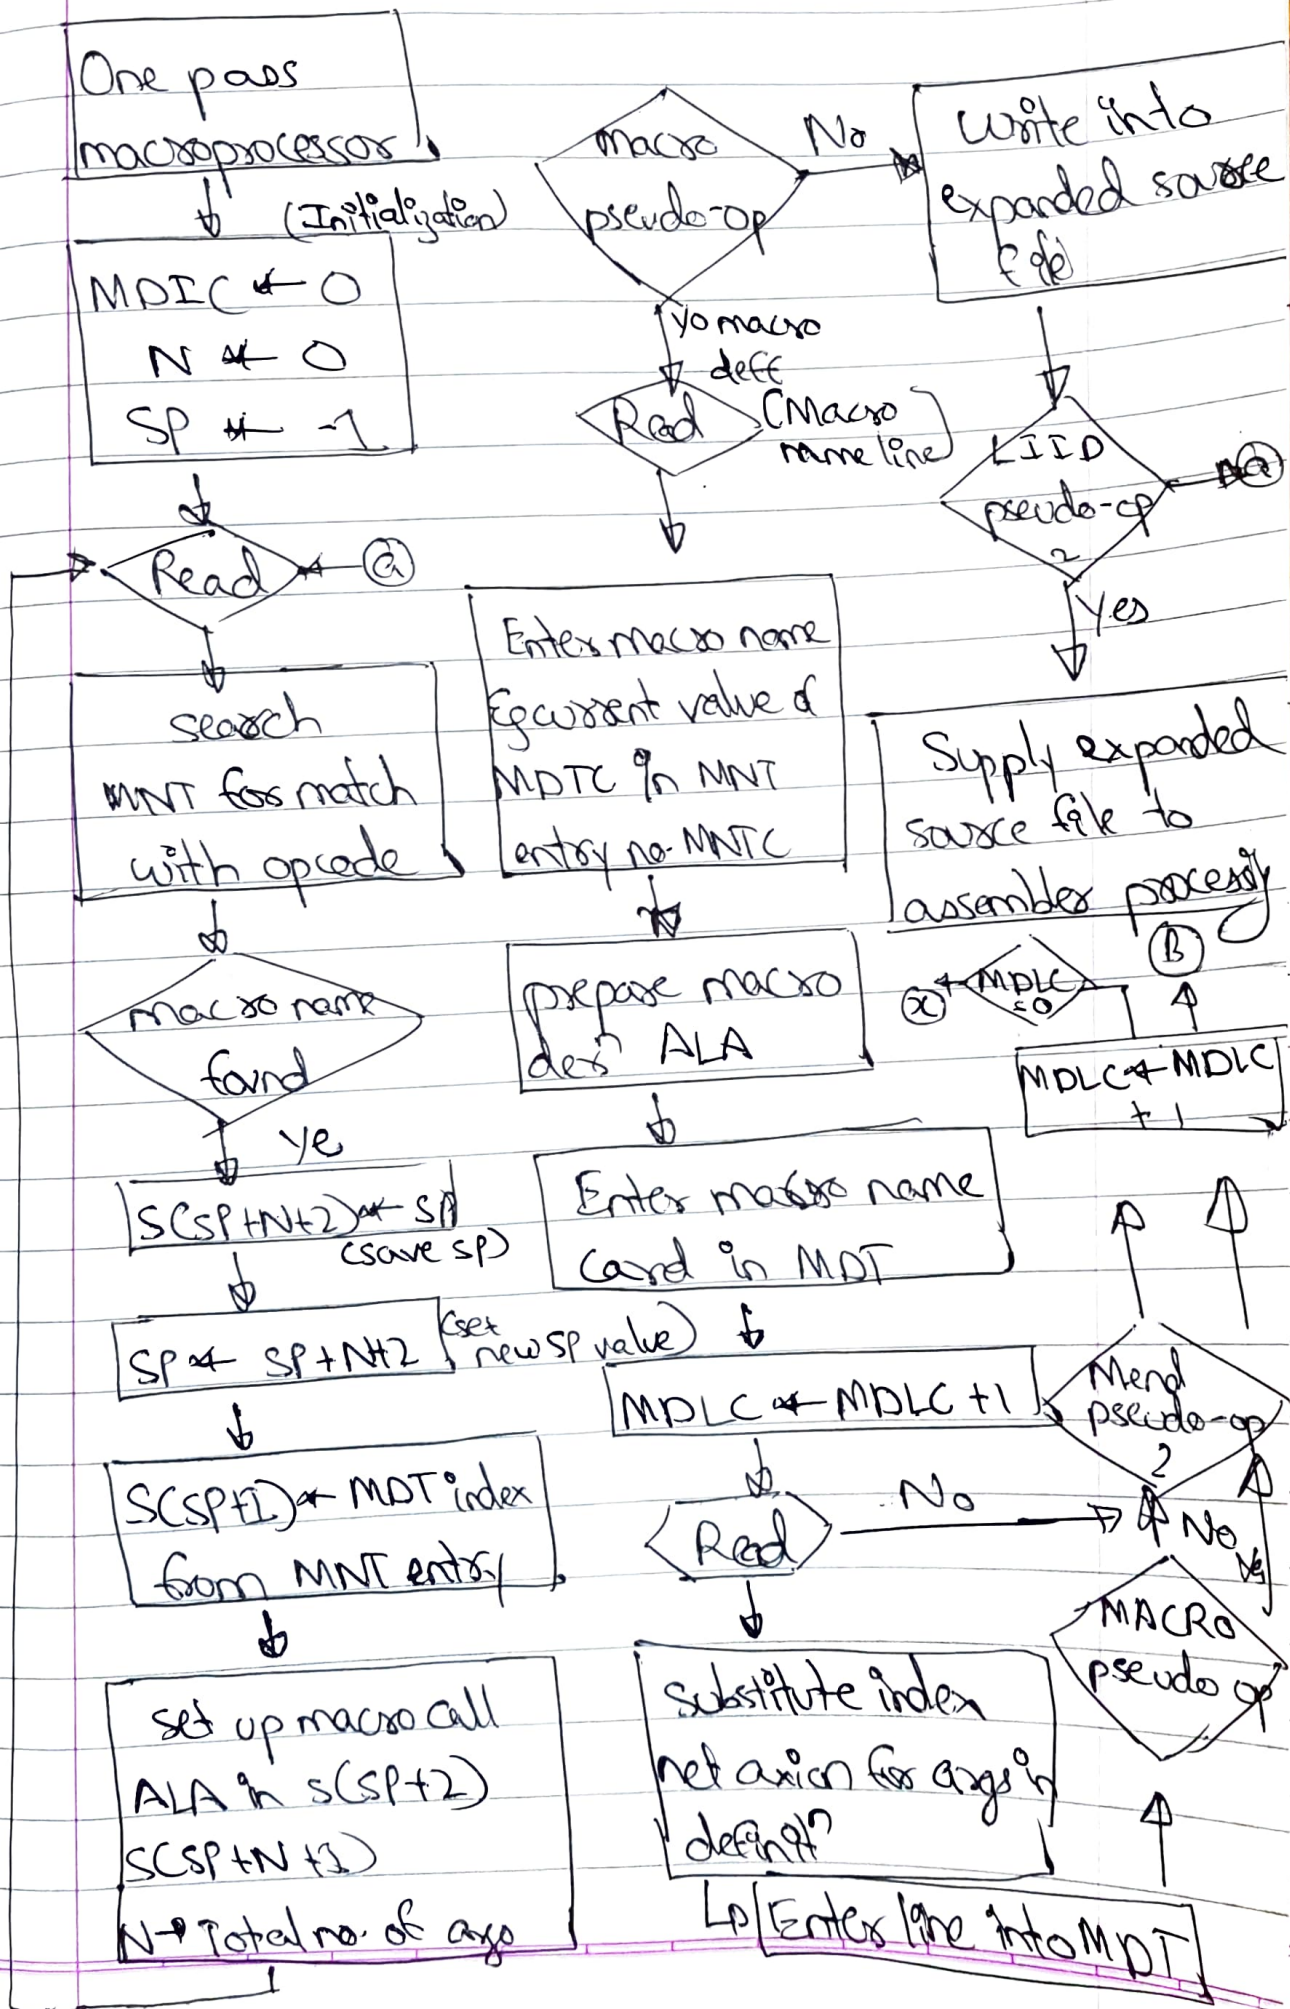 One pass
macroprocessor
(Initialization)
MDIC ← 0
N ← 0
SP ← -1
Read
a
search
MNT for match
with opcode
macro name
found
ye
S(SP+N+2) ← SP
(save SP)
SP ← SP+N+2
(set
new SP value)
S(SP+1) ← MDT index
from MNT entry
set up macro call
ALA in S(SP+2)
S(SP+N+1)
N → Total no. of args
macro
pseudo-op
No
yo macro
deff
Read
(Macro
name line)
Enter macro name
& current value of
MDTC in MNT
entry no. MNTC
prepare macro
defn ALA
Enter macro name
Card in MDT
MDLC ← MDLC +1
Read
No
substitute index
net axion for args in
definitn
Enter line into MDT
Write into
expanded source
file
LIID
pseudo-op
?
a
Yes
Supply expanded
source file to
assembler processing
B
MDLC
=0
x
MDLC ← MDLC
+ 1
Mend
pseudo-op
?
No
Yes
MACRO
pseudo op